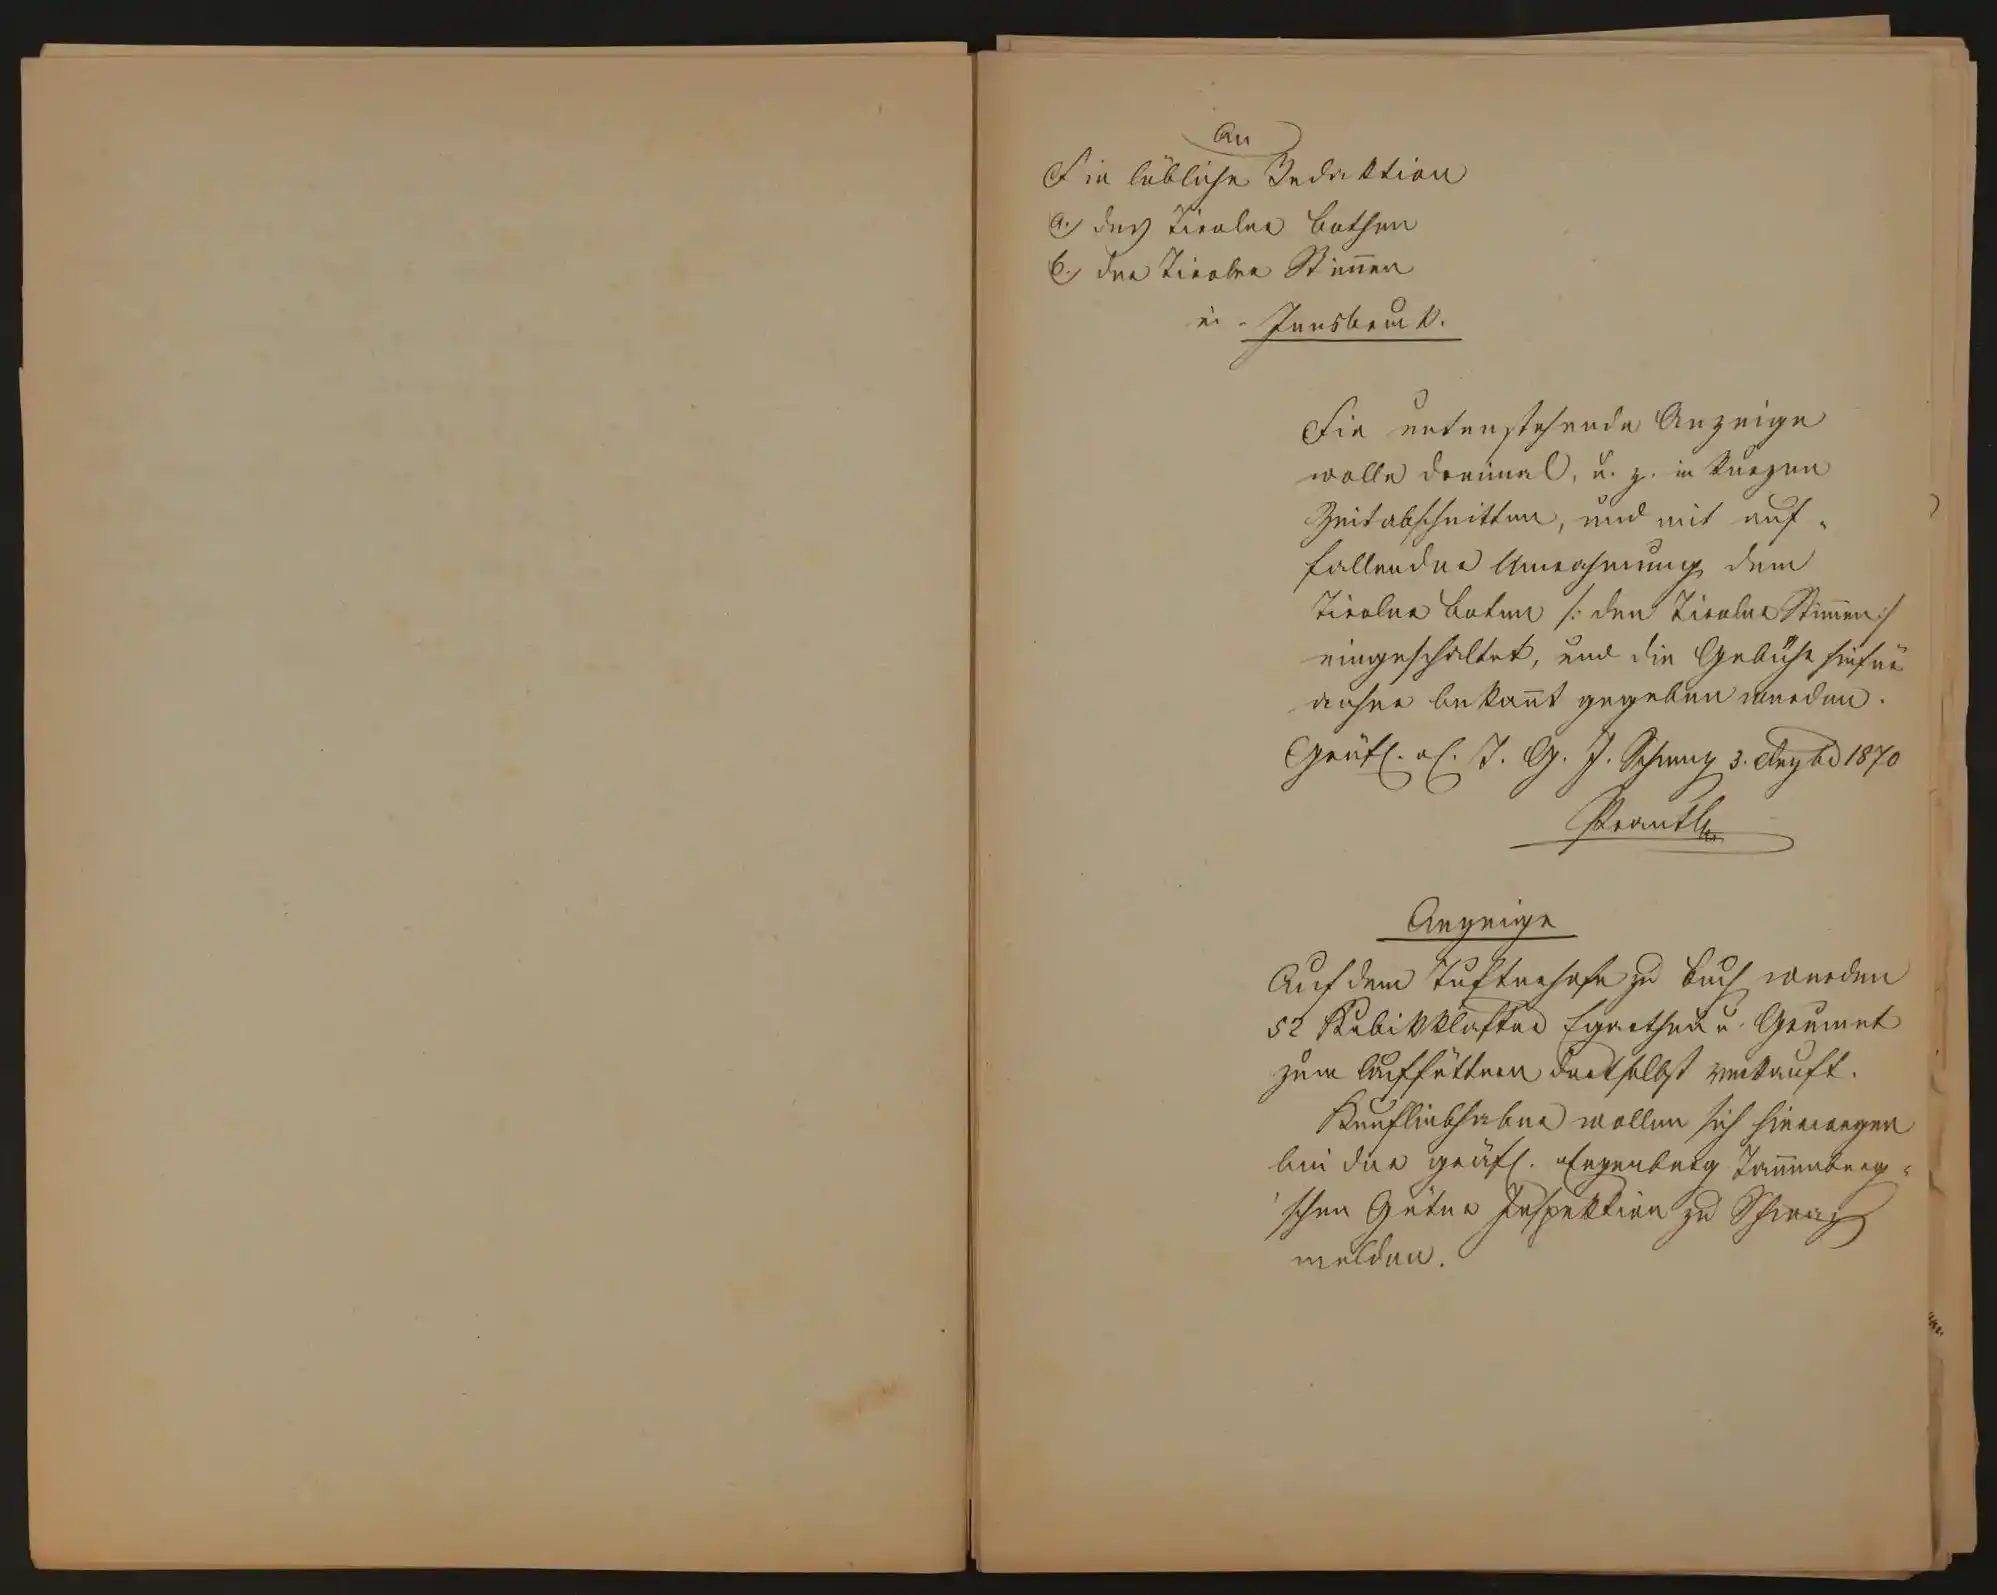 An
Die löbliche Redaktion
a.) des Tiroler Bothen
b.) der Tiroler Stimmen
in Innsbruck.
Die untenstehende Anzeige
wolle dreimal, u. z. in kurzen
Zeitabschnitten, und mit auf-
fallender Umrahmung dem
Tiroler Boten /: den Tiroler Stimmen :/
eingeschaltet, und die Gebühr hiefür
anher bekannt gegeben werden.
Gräfl. E. T. G. J. Schwaz 3. 1870
Prantl
Anzeige
Auf dem zu Buch werden
52 Kubikklafter u. Grumet
zum Auffüttern dortselbst verkauft.
Kaufliebhaber wollen sich hierwegen
bei der gräfl. Enzenberg Tannenberg-
schen Güter Inspektion zu Schwaz
melden.